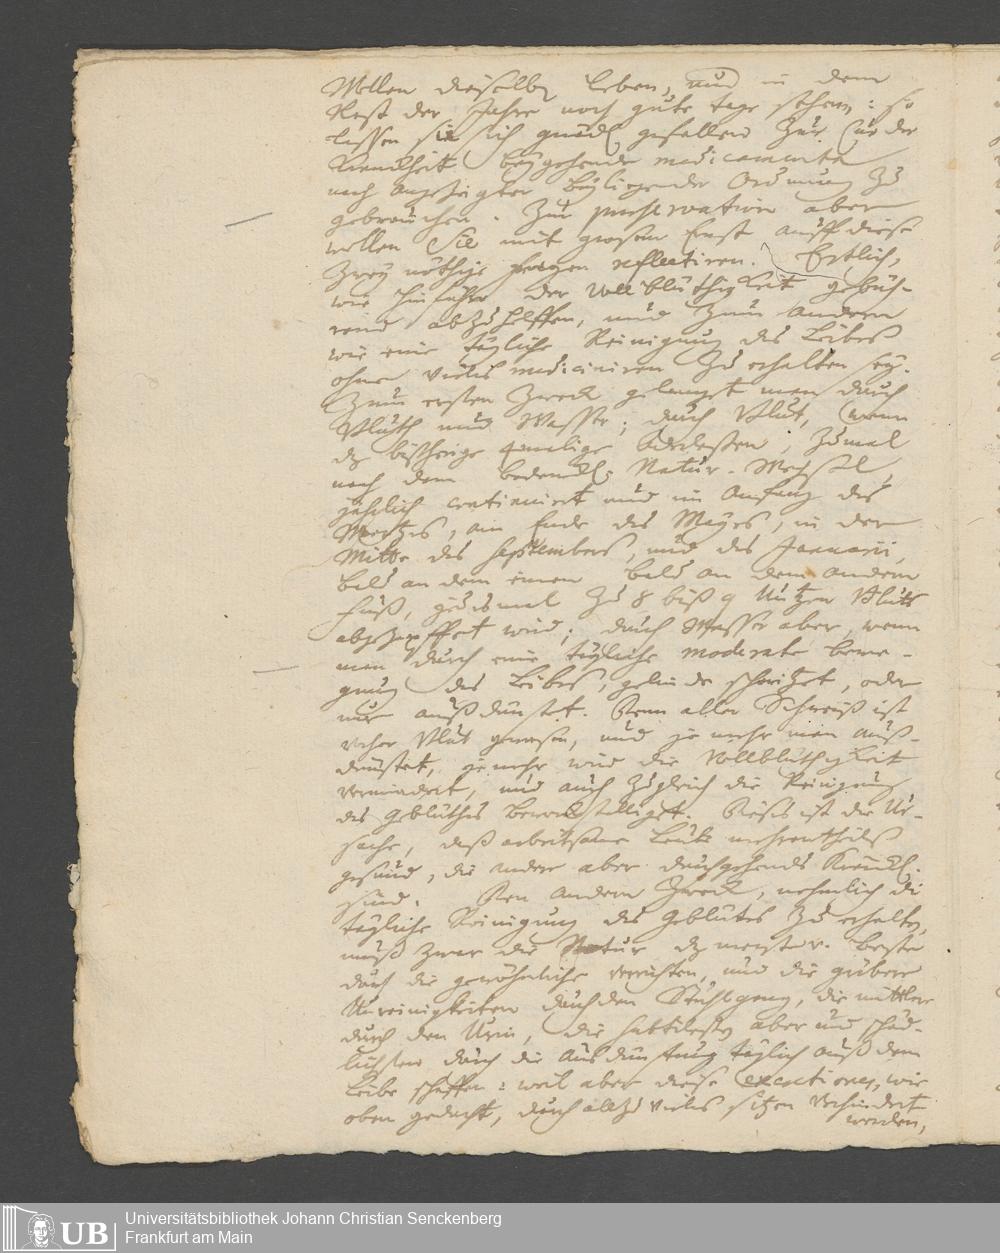 Wollen dieselbe leben, und in dem
Rest der Jahre noch gute tage sehen: so
lassen sie sich gnädl gefallen zur Cur der
Kranckheit beygehende medicamenta
nach angezeigter beyliegender Ordnung zu
gebrauchen. Zur praeservation aber
wollen Sie mit grosem Ernst auff diese
zwey nöthige fragen reflectiren. Erstlich,
wie hinführo der Vollblüthigkeit gebüh-
rend abzuhelffen, und zum andern
wie eine tägliche Reinigung des Leibes
ohne vieles mediciniren zu erhalten sey.
Zum ersten Zweck gelangt man durch
Bluth und Wasser; durch Blut, wenn
dz bißherige 4malige Aderlassen, zumal
nach dem Natur-Wechsel,
jährlich continuirt und im Anfang des
Mertzes, am Ende des Mayes, in der
Mitte des Septembers, und des Januarii,
bald an dem einen bald an dem andern
fuß, jedesmal zu 8 biß 9 Untzen Bluts
abgezapffet wird; durch Wasser aber, wenn
man durch eine tägliche moderate bewe-
gung des Leibes, gelinde schwitzet, oder
nur außdünstet. Denn aller Schweiß ist
vorher Blut gewesen, und je mehr man auß-
dünstet, je mehr wird die Vollblüthigkeit
vermindert, und auch zugleich die Reinigung
des Geblüthes bewerckstelliget. Dieses ist die Ur-
sache, daß arbeitsame Leute mehrentheils
gesund, die andere aber durchgehends kräncklich
sind. Den andern Zweck, nehmlich die
tägliche Reinigung des Geblütes zu erhalten,
muß zwar die Natur dz meiste u. beste
durch die gewöhnliche verrichten, und die gröbere
Unreinigkeiten durch den Stuhlgang, die mittlere
durch den Urin, die subtileste aber und schäd-
lichste durch die Ausdünstung täglich auß dem
Leibe schaffen: weil aber diese excretiones, wie
oben gedacht, durch allzu vieles sitzen verhindert
werden,
Universitätsbibliothek Johann Christian Senckenberg
Frankfurt am Main
UB